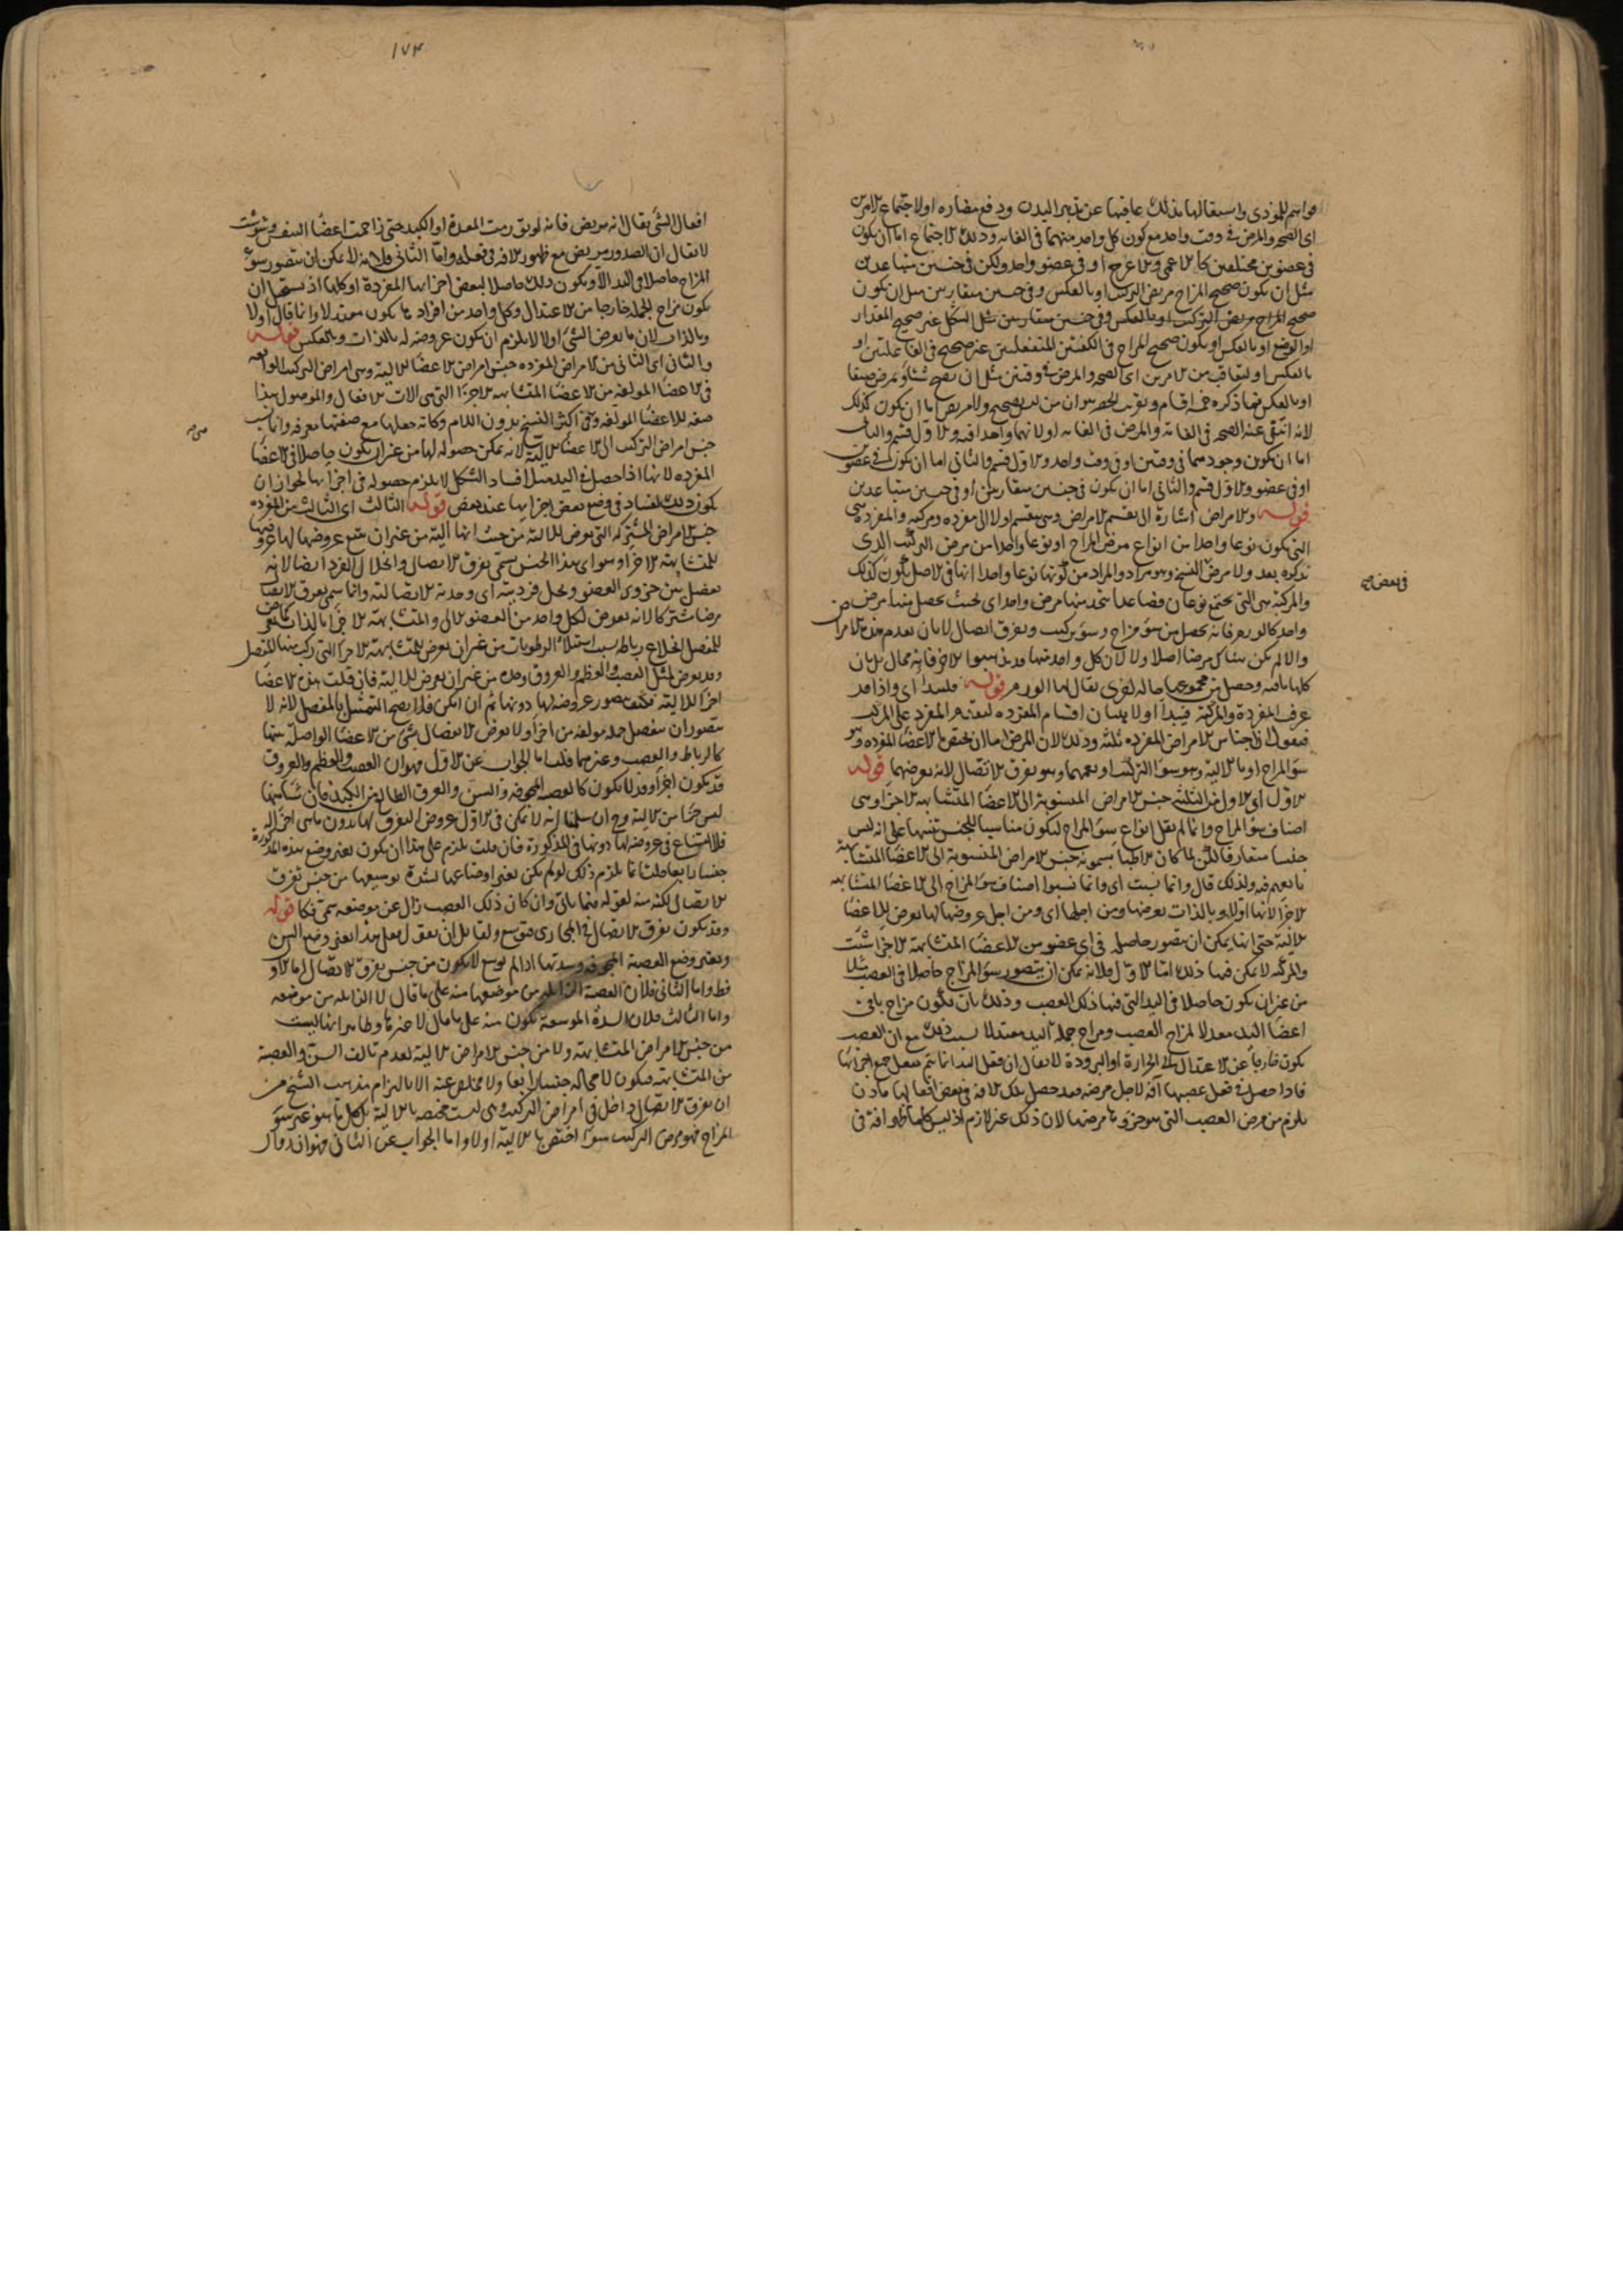 هو اسم للموذى واستقالها بذلك عاقبها عن تدبير البدن ودفع مضاره او لاجتماع الامرين
اى الصحة والمرض فى وقت واحد مع كون كل واحد منهما فى الغاية وذلك الاجتماع اما ان يكون
فى عضوين مختلفين كالاعمى والاعرج او فى عضو واحد ولكن فى جنسين متباعدين
مثل ان يكون صحيح المزاج مريض التركيب او بالعكس وفى جنسين متقاربين مثل ان يكون
صحيح المزاج مريض التركيب او بالعكس وفى جنسين متقاربين مثل الشكل غير صحيح المقدار
او الوضع او بالعكس او يكون صحيح المزاج فى الكيفيتين المنفعلتين غير صحيح فى الفاعلتين او
بالعكس او لتعاقب من الامرين اى الصحة والمرض فى وقتين مثل ان يصح شتاء ويمرض صيفا
او بالعكس فما ذكره ستة اقسام وتقريب الحصر هو ان من ليس بصحيح ولا مريض اما ان يكون كذلك
لانه انتفى عنه الصحة فى الغاية والمرض فى الغاية او لانهما واحدا فيه والاول قسم والثانى
اما ان يكون وجودهما فى وقتين او فى وقت واحد والاول قسم والثانى اما ان يكون فى عضوين
او فى عضو والاول قسم والثانى اما ان يكون فى جنسين متقاربين او فى جنسين متباعدين
قوله والامراض اشارة الى تقسيم الامراض وهى تنقسم اولا الى مفردة ومركبة والمفردة هى
التى يكون نوعا واحدا من انواع مرض المزاج او نوعا واحدا من مرض التركيب الذى
نذكره بعد ولا مرض النسخ وهو مراد والمراد من كونها نوعا واحدا انها فى الاصل يكون كذلك
والمركبة هى التى يجتمع نوعان فصاعدا يتحد منها مرض واحد اى بحيث يحصل منها مرض
واحد كالورم فانه يحصل من سوء مزاج وسوء تركيب وتفرق اتصال لا بان يعدم هذه الامراض
والا لم يكن هناك مرضا اصلا ولا لان كل واحد منها
كلها باقية وحصل من مجموعها حالة اخرى يقال لها الورم قوله فلنبدأ اى واذا قد
عرف المفردة والمركبة فنبدأ اولا ببيان اقسام المفردة لتقدم المفرد على المركب
فنقول اجناس الامراض المفردة ثلثة وذلك لان المرض اما ان يختص بالاعضا المفردة وهو
سوء المزاج او بالالية وهو سوء التركيب او يعمهما وهو تفرق الاتصال لانه يعرضهما قوله
الاول اى الاول من الثلثة جنس الامراض المنسوبة الى الاعضا المتشابهة الاجزا وهى
اصناف سوء المزاج وانما لم يقل انواع سوء المزاج ليكون مناسبا للجنس تنبيها على انه ليس
جنسا متعارفا لكن لما كان الاطبا يسمونه جنس الامراض المنسوبة الى الاعضا المتشابهة
تابعهم فيه ولذلك قال وانما نسبت اى وانما نسبوا اصناف سوء المزاج الى الاعضا المتشابهة
الاجزا لانها اولا وبالذات يعرضها ومن اجلها اى ومن اجل عروضها لها يعرض للاعضا
الالية حتى انها يمكن ان يتصور حاصلة فى اى عضو من الاعضا المتشابهة الاجزا شئت
والمركبة لا يمكن فيها ذلك اما الاول فلانه يمكن ان يتصور سوء المزاج حاصلا فى العصب مثلا
من غير ان يكون حاصلا فى اليد التى فيها ذلك العصب وذلك بان يكون مزاج باقى
اعضا اليد معدلا لمزاج العصب ومزاج جملة اليد معتدلا بسبب ذلك مع ان العصب
يكون خارجا عن الاعتدال الى الحرارة او البرودة لا يقال ان فعل اليد انما يتم بفعل جميع اجزائها
فاذا حصل فى فعل عصبها آفة لاجل مرضه فقد حصل بتلك الافة فى بعض افعالها فاذن
يلزم من مرض العصب التى هو جزؤها مرضها لان ذلك غير لازم اذ ليس كلما ظهر افة فى
فى بعض
١٧٣
افعال الشئ يقال انه مريض فانه لو تورمت المعدة او الكبد حتى زاحمت اعضا التنفس وشوشت
لا يقال ان الصدر مريض مع ظهور الافة فى فعله واما الثانى فلانه لا يمكن ان يتصور سوء
المزاج حاصلا فى اليد الا ويكون ذلك حاصلا لبعض اجزائها المفردة او كلها اذ يستحيل ان
يكون مزاج الجملة خارجا من الاعتدال وكل واحد من افراد ما يكون معتدلا وانما قال اولا
وبالذات لان ما يعرض الشئ اولا لا يلزم ان يكون عروضه له بالذات وبالعكس قوله
والثانى اى الثانى من الامراض المفردة جنس امراض الاعضا الالية وهى امراض التركيب الواقعة
فى الاعضا المؤلفة من الاعضا المتشابهة الاجزا التى هى الات الافعال والموصول هذا
صفة للاعضا المولفة وفى اكثر النسخ بدون اللام وكانه جعلها مع صفتها معرفة وانما نسب
جنس امراض التركيب الى الاعضا الالية لانه يمكن حصوله لها من غير ان يكون حاصلا فى الاعضا
المفردة لانها اذا حصل فى اليد مثلا فساد الشكل لا يلزم حصوله فى اجزائها لجواز ان
يكون ذلك لفساد فى وضع بعض اجزائها عند بعض قوله الثالث اى الثالث من المفردة
جنس الامراض المشتركة التى يعرض للالية من حيث انها آلية من غير ان يتبع عروضها لها عروضها
للمتشابهة الاجزا وهو اى هذا الجنس يسمى تفرق الاتصال وانحلال الفرد ايضا لانه
يفصل بين جزوى العضو ويحل فرديته اى وحدته الاتصالية وانما سمى تفرق الاتصال
مرضا مشتركا لانه يعرض لكل واحد من العضو الالى والمتشابهة الاجزا بالذات
للمفصل انخلاع رباطه بسبب استيلا الرطوبات من غير ان يعرض للمتشابهة الاجزا التى ركب منها المفصل
وقد يعرض لمثل العصب والعظم والعروق وحده من غير ان يعرض للالية فان قلت هذه الاعضا
اجزا للالية فكيف يتصور عروضه لها دونها ثم ان امكن فلا يصح التمثيل بالمفصل لانه لا
يتصور ان ينفصل جملة مولفة من اجزا ولا يعرض الانفصال بشئ من الاعضا الواصلة بينها
كالرباط والعصب وغيرهما قلنا اما الجواب عن الاول فهو ان العصب والعظم والعروق
قد يكون اجزا وقد لا يكون كالعصبة المجوفة والسن والعرق الطالع من الكبد فان شيئا منها
ليس جزا من الالية وح ان سلمنا انه لا يمكن فى الاول عروض التفرق لها بدون ما هى اجزا له
فلا امتناع فى عروضه لها دونها فى المذكورة فان قلت يلزم على هذا ان يكون تغير وضع هذه المذكورة
جنسا رابعا قلت انما يلزم ذلك لو لم يكن تغير اوضاعها لشدة توسيعها من جنس تفرق
الاتصال لكنه منه لقوله فيما ياتى وان كان ذلك العصب زال عن موضعه سمى فكا قوله
وقد يكون تفرق الاتصال فى المجارى فتوسع ولقائل ان يقول فعل هذا تغير وضع السن
وتغير وضع العصبة المجوفة وسدتها اذا لم يوسع لا يكون من جنس تفرق الاتصال اما الاول
فظ واما الثانى فلان العصبة الزايلة من موضعها منه على ما قال لا الزايلة من موضعه
واما الثالث فلان السدة الموسعة يكون منه على ما قال لا غيرها وظاهر انها ليست
من جنس الامراض المتشابهة ولا من جنس الامراض الالية لعدم تالف السن والعصبة
من المتشابهة فيكون لا محالة جنسا رابعا ولا مخلص عنه الا بالتزام مذهب الشيخ من
ان تفرق الاتصال داخل فى امراض التركيب وهى ليست مختصة بالالية بل كل ما هو غير سوء
المزاج فهو مرض التركيب سواء اختص بالالية او لا واما الجواب عن الثانى فهو انه قال